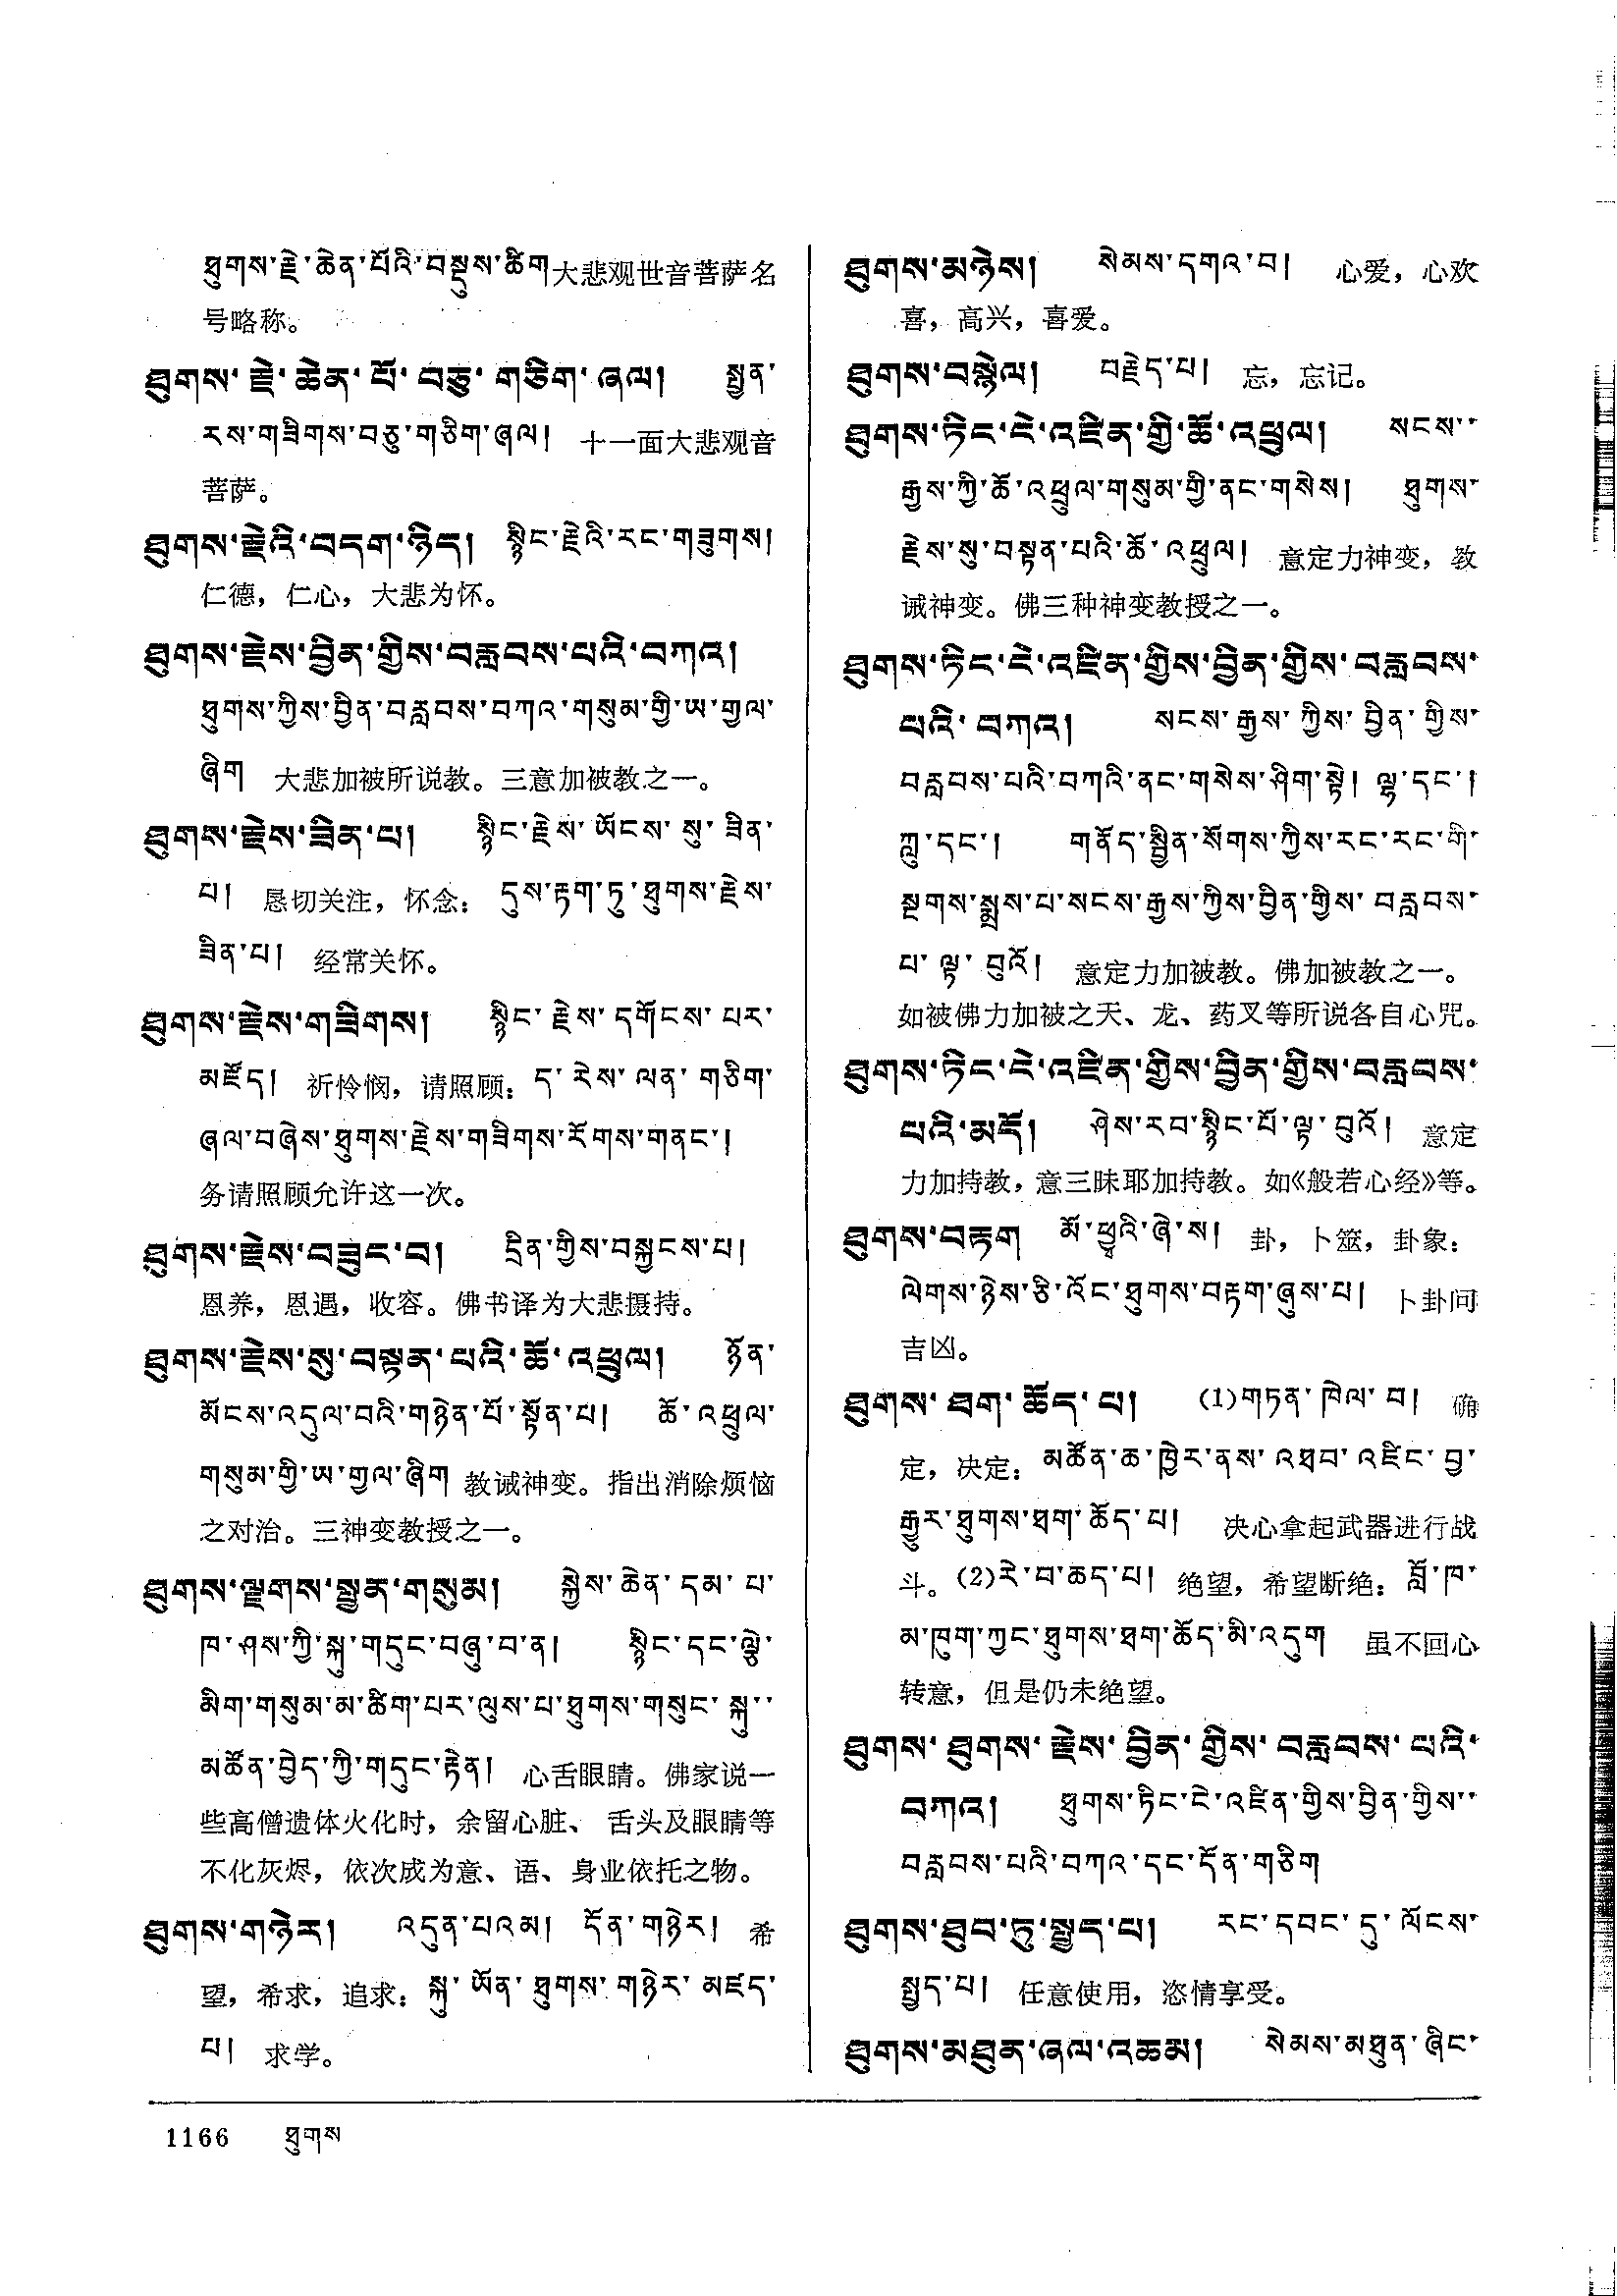 ཐུགས་རྗེ་ཆེན་པོའི་བསྡུས་ཚིག大悲观世音菩萨名
号略称。
ཐུགས་རྗེ་ཆེན་པོ་བཅུ་གཅིག་ཞལ། སྤྱན་
རས་གཟིགས་བཅུ་གཅིག་ཞལ། 十一面大悲观音
菩萨。
ཐུགས་རྗེའི་བདག་ཉིད། སྙིང་རྗེའི་རང་གཟུགས།
仁德，仁心，大悲为怀。
ཐུགས་རྗེས་བྱིན་གྱིས་བརླབས་པའི་བཀའ།
ཐུགས་ཀྱིས་བྱིན་བརླབས་བཀའ་གསུམ་གྱི་ཡ་གྱལ་
ཞིག 大悲加被所说教。三意加被教之一。
ཐུགས་རྗེས་ཟིན་པ། སྙིང་རྗེས་ཡོངས་སུ་ཟིན་
པ། 恳切关注，怀念：དུས་རྟག་ཏུ་ཐུགས་རྗེས་
ཟིན་པ། 经常关怀。
ཐུགས་རྗེས་གཟིགས། སྙིང་རྗེས་དགོངས་པར་
མཛོད། 祈怜悯，请照顾：ད་རེས་ལན་གཅིག་
ཞལ་བཞེས་ཐུགས་རྗེས་གཟིགས་རོགས་གནང་།
务请照顾允许这一次。
ཐུགས་རྗེས་བཟུང་བ། དྲིན་གྱིས་བསྐྱངས་པ།
恩养，恩遇，收容。佛书译为大悲摄持。
ཐུགས་རྗེས་སུ་བསྟན་པའི་ཆོ་འཕྲུལ། ཉོན་
མོངས་འདུལ་བའི་གཉེན་པོ་སྟོན་པ། ཆོ་འཕྲུལ་
གསུམ་གྱི་ཡ་གྱལ་ཞིག 教诫神变。指出消除烦恼
之对治。三神变教授之一。
ཐུགས་ལྗགས་སྤྱན་གསུམ། སྐྱེས་ཆེན་དམ་པ་
ཁ་ཤས་ཀྱི་སྐུ་གདུང་བཞུ་བ་ན། སྙིང་དང་ལྕེ་
མིག་གསུམ་མ་ཚིག་པར་ལུས་པ་ཐུགས་གསུང་སྐུ་་
མཚོན་བྱེད་ཀྱི་གདུང་རྟེན། 心舌眼睛。佛家说一
些高僧遗体火化时，余留心脏、舌头及眼睛等
不化灰烬，依次成为意、语、身业依托之物。
ཐུགས་གཉེར། འདུན་པའམ། དོན་གཉེར། 希
望，希求，追求：སྐུ་ཡོན་ཐུགས་གཉེར་མཛད་
པ། 求学。
ཐུགས་མཉེས། སེམས་དགའ་བ། 心爱，心欢
喜，高兴，喜爱。
ཐུགས་བསྙེལ། བརྗེད་པ། 忘，忘记。
ཐུགས་ཏིང་ངེ་འཛིན་གྱི་ཆོ་འཕྲུལ། སངས་་
རྒྱས་ཀྱི་ཆོ་འཕྲུལ་གསུམ་གྱི་ནང་གསེས། ཐུགས་
རྗེས་སུ་བསྟན་པའི་ཆོ་འཕྲུལ། 意定力神变，教
诫神变。佛三种神变教授之一。
ཐུགས་ཏིང་ངེ་འཛིན་གྱིས་བྱིན་གྱིས་བརླབས་
པའི་བཀའ། སངས་རྒྱས་ཀྱིས་བྱིན་གྱིས་
བརླབས་པའི་བཀའི་ནང་གསེས་ཤིག་སྟེ། ལྷ་དང་།
ཀླུ་དང་། གནོད་སྦྱིན་སོགས་ཀྱིས་རང་རང་གི་
སྔགས་སྨྲས་པ་སངས་རྒྱས་ཀྱིས་བྱིན་གྱིས་བརླབས་
པ་ལྟ་བུའོ། 意定力加被教。佛加被教之一。
如被佛力加被之天、龙、药叉等所说各自心咒。
ཐུགས་ཏིང་ངེ་འཛིན་གྱིས་བྱིན་གྱིས་བརླབས་
པའི་མདོ། ཤེས་རབ་སྙིང་པོ་ལྟ་བུའོ། 意定
力加持教，意三昧耶加持教。如《般若心经》等。
ཐུགས་བརྟག མོ་ཕྱྭའི་ཞེ་ས། 卦，卜筮，卦象：
ལེགས་ཉེས་ཅི་འོང་ཐུགས་བརྟག་ཞུས་པ། 卜卦问
吉凶。
ཐུགས་ཐག་ཆོད་པ། (1)གཏན་ཁེལ་བ། 确
定，决定：མཚོན་ཆ་ཁྱེར་ནས་འཐབ་འཛིང་བྱ་
རྒྱུར་ཐུགས་ཐག་ཆོད་པ། 决心拿起武器进行战
斗。(2)རེ་བ་ཆད་པ། 绝望，希望断绝：བློ་ཁ་
མ་ཁུག་ཀྱང་ཐུགས་ཐག་ཆོད་མི་འདུག 虽不回心
转意，但是仍未绝望。
ཐུགས་ཐུགས་རྗེས་བྱིན་གྱིས་བརླབས་པའི་
བཀའ། ཐུགས་ཏིང་ངེ་འཛིན་གྱིས་བྱིན་གྱིས་་
བརླབས་པའི་བཀའ་དང་དོན་གཅིག
ཐུགས་ཐུབ་ཏུ་སྤྱད་པ། རང་དབང་དུ་ལོངས་
སྤྱད་པ། 任意使用，恣情享受。
ཐུགས་མཐུན་ཞལ་འཆམ། སེམས་མཐུན་ཞིང་
1166 ཐུགས